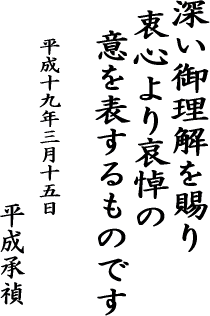 深い御理解を賜り
衷心より哀悼の
意を表するものです
平成十九年三月十五日
平成承禎